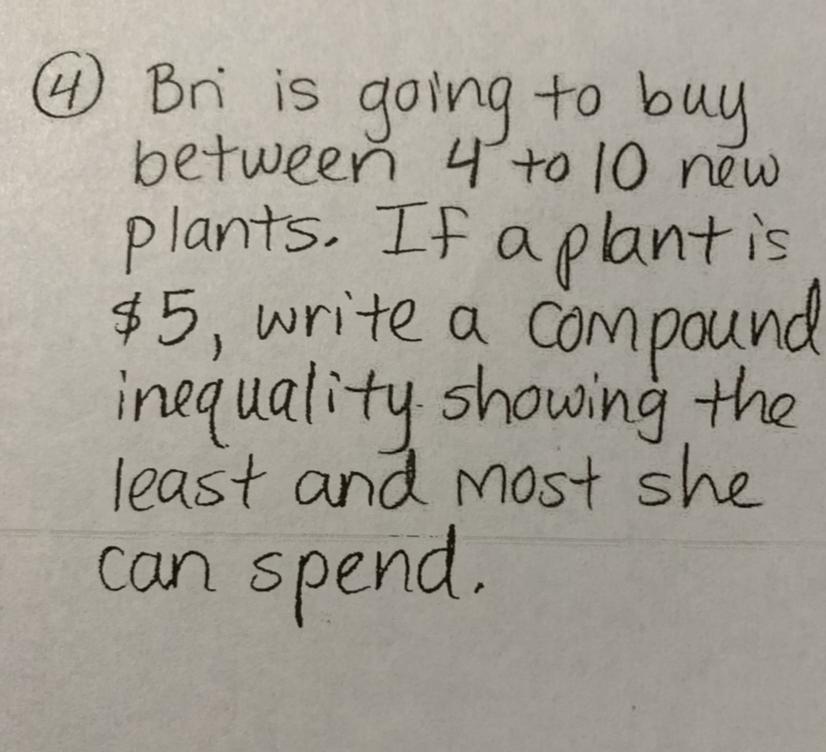 ④ Bri is going to buy
between 4 to 10 new
plants. If a plant is
$5, write a compound
inequality showing the
least and most she
can spend.